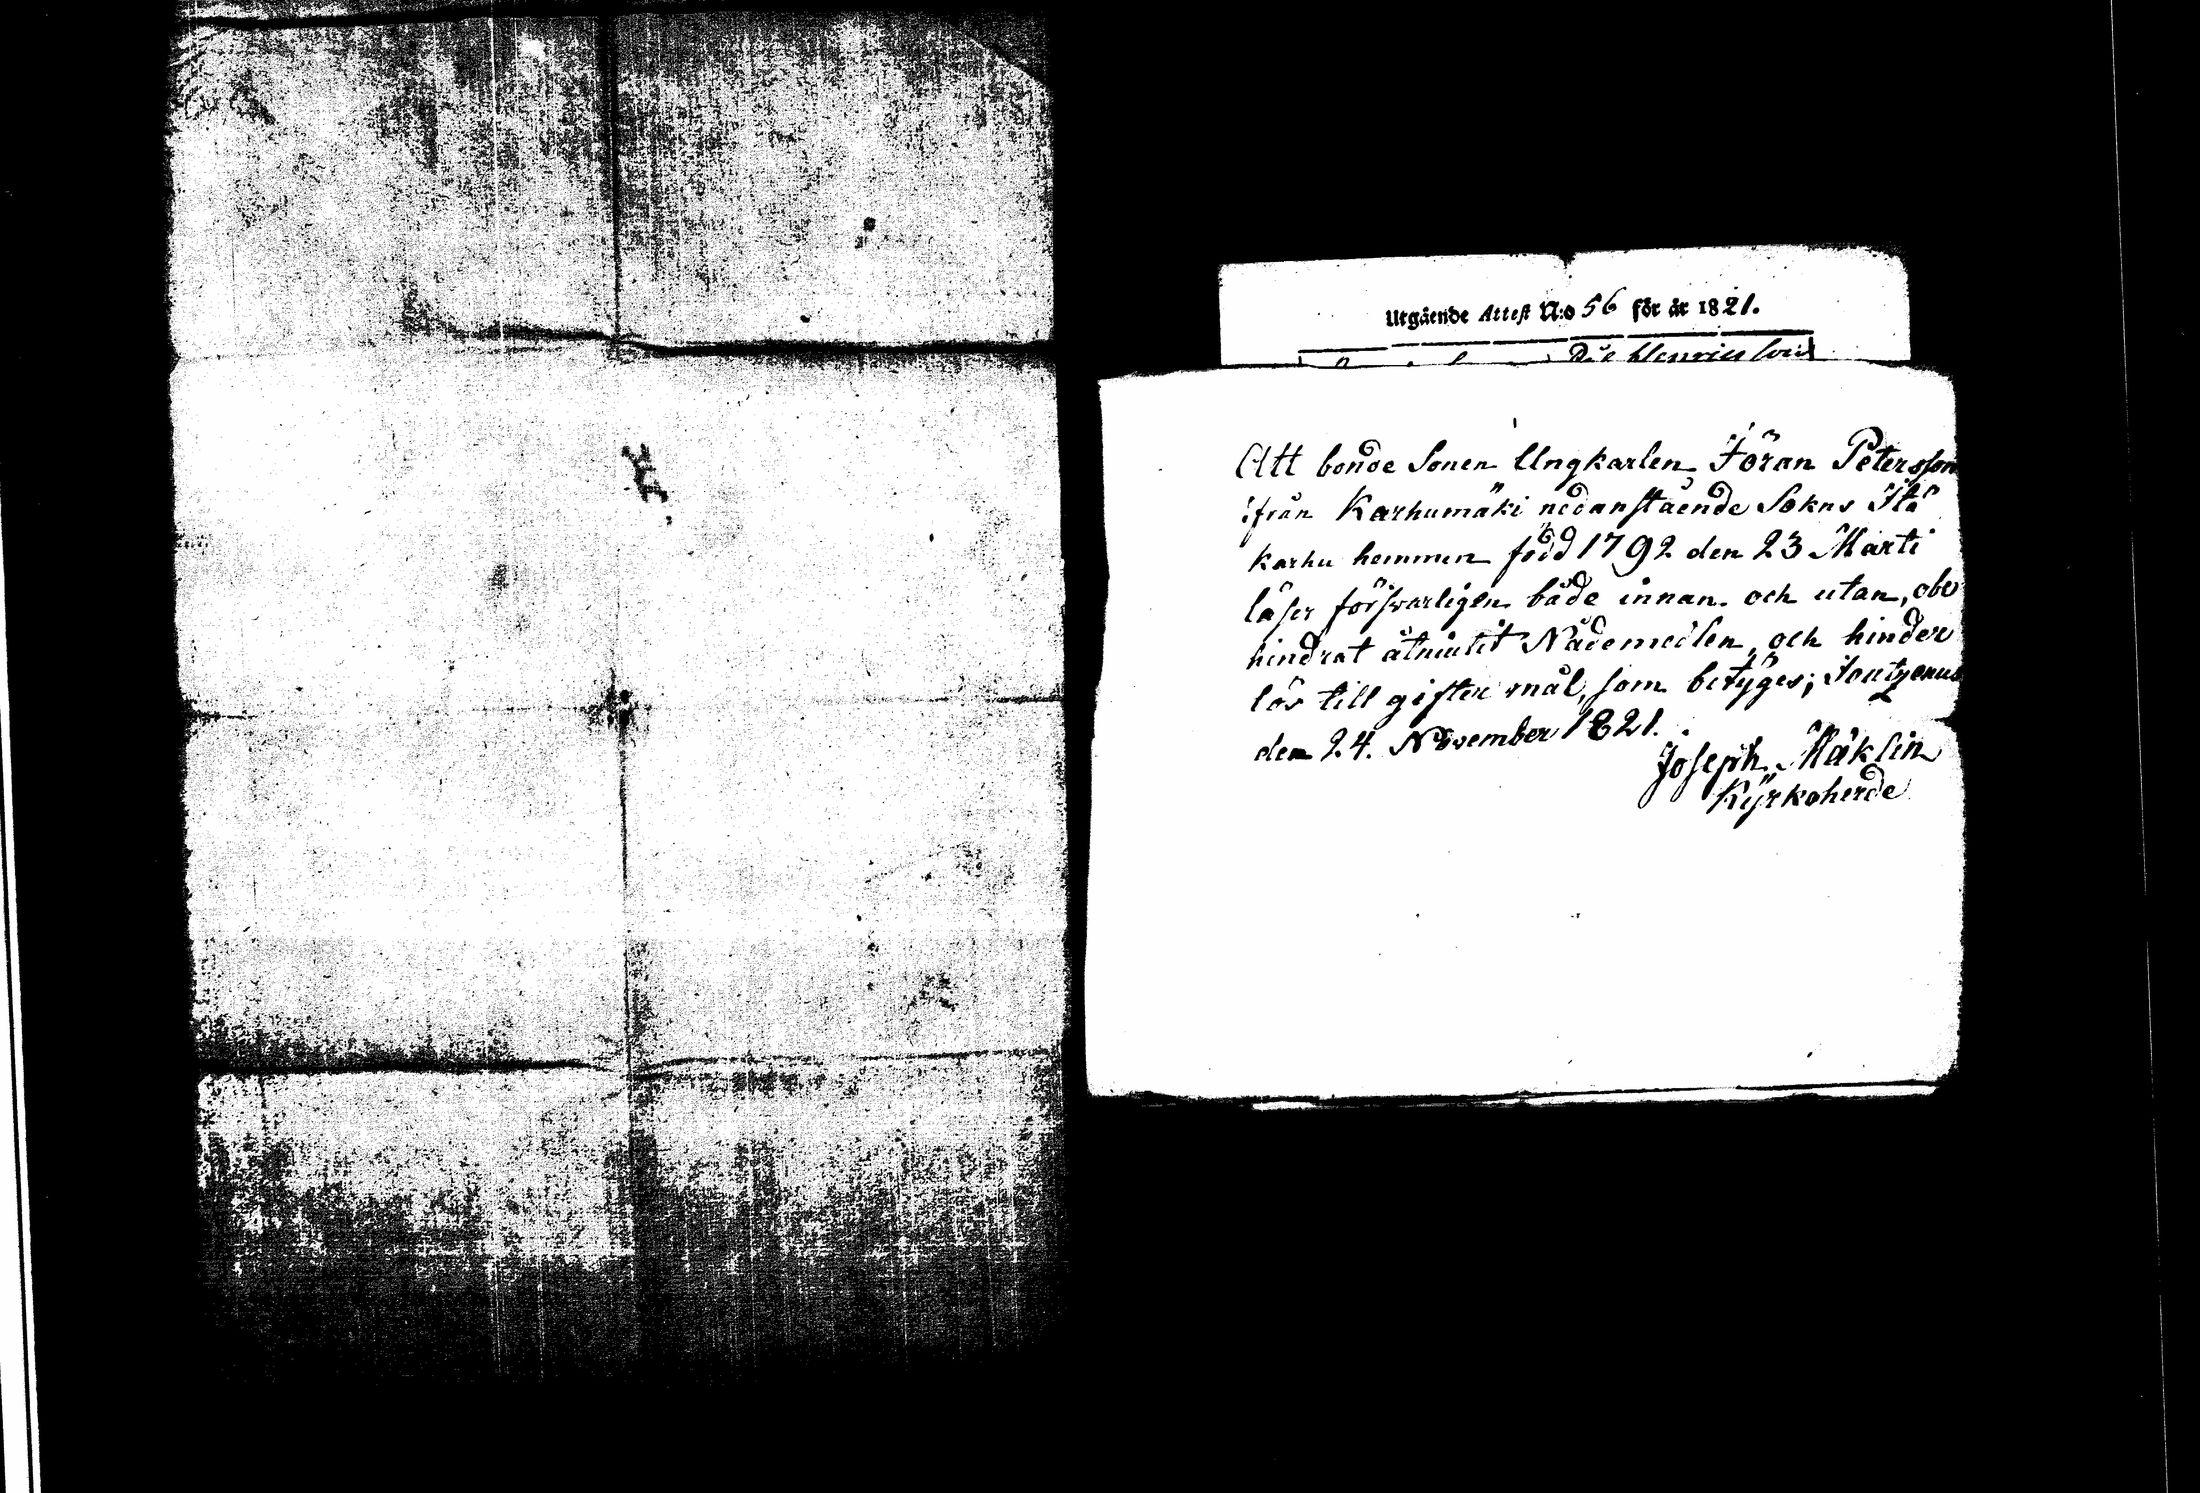 Utgående Attest N:o 56 för år 1821.
Henricsson
Att bonde Sonen Ungkarlen Jöran Petersson
ifrån Karhumäki nedanstående Sokns Itä
karhu hemman född 1792 den 23 Marti
läser försvarligen både innan och utan, obe
hindrat åtniutit Nådemedlen, och hinder
lös till gifter mål, som betyges; Joutzenus
den 24. November 1821.
Joseph Mäklin
Kyrkoherde